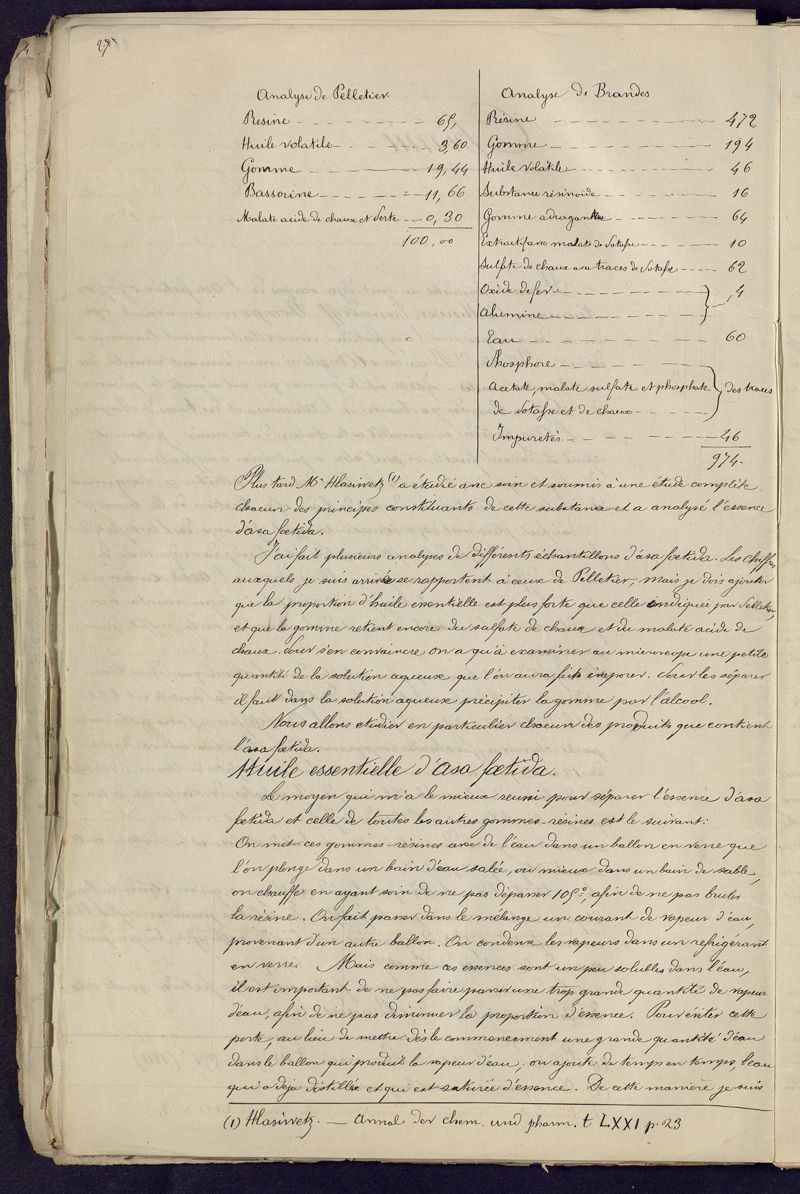 27
Analyse de Pelletier.
Resine - - - - - - - - 65,
Huile volatile - - - - - 3,60
Gomme - - - - - 19,44
Bassorine - - - - - 11,66
Malate acide de chaux et perte - - - 0,30
100,00
Analyse de Brandes
Résine - - - - - 472
Gomme - - - - - 194
Huile volatile - - - - - 46
Substance résinoïde - - - - - 16
Gomme adragante - - - - - 64
Extractif avec malate de Potasse - - - - 10
Sulfate de chaux avec traces de Potasse - - - - 62
Oxide de fer - - - - - 4
Alumine - - - - -
Eau - - - - - 60
Phosphore - - - - -
Acetate, malate sulfate et phosphate des traces
de Potasse et de chaux - - - -
Impuretés - - - - - 46
974.
Plus tard Mr Hlasiwetz (1) a étudié avec soin et soumis à une étude complète
chacun des principes constituants de cette substance et a analysé l'essence
d'asa fœtida.
J'ai fait plusieurs analyses de différents échantillons d'asa fœtida. Les chiffres
auxquels je suis arrivé se rapportent à ceux de Pelletier, mais je dois ajouter
que la proportion d'huile essentielle est plus forte que celle indiquée par Pelletier,
et que la gomme retient encore du sulfate de chaux et du malate acide de
chaux. Pour s'en convaincre on a qu'à examiner au microscope une petite
quantité de la solution aqueuse que l'on aura faite évaporer. Pour les séparer
il faut dans la solution aqueux précipiter la gomme par l'alcool.
Nous allons etudier en particulier chacun des produits que contient
l'asa fœtida.
Huile essentielle d'asa fœtida.
Le moyen qui m'a le mieux reussi pour séparer l'essence d'asa
fœtida et celle de toutes les autres gommes-résines est le suivant:
On met ces gommes-résines avec de l'eau dans un ballon en verre que
l'on plonge dans un bain d'eau salée, ou mieux dans un bain de sable,
on chauffe en ayant soin de ne pas dépasser 105°, afin de ne pas bruler
la résine. On fait passer dans le mélange un courant de vapeur d'eau,
provenant d'un autre ballon. On condense les vapeurs dans un refrigérant
en verre. Mais comme ces essences sont un peu solubles dans l'eau,
il est important de ne pas faire passer une trop grande quantité de vapeur
d'eau, afin de ne pas diminuer la proportion d'essence. Pour eviter cette
perte, au lieu de mettre dès le commencement une grande quantité d'eau
dans le ballon qui produit la vapeur d'eau, on ajoute de temps en temps, l'eau
qui a deja distillée et qui est saturée d'essence. De cette manière je suis
(1) Hlasiwetz. — Annal der chem. und pharm. t LXXI p. 23